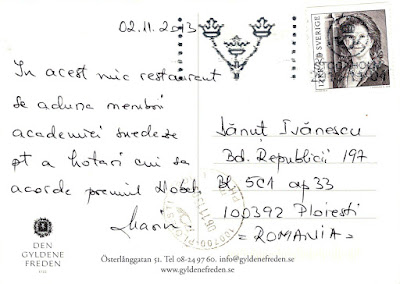 02.11.2013
In acest mic restaurant
se aduna membrii
academiei suedeze
pt a hotarî cui sa
acorde premiul Nobel.
Marin
Dănuț Ivănescu
Bd. Republicii 197
Bl 5C1 ap 33
100392 Ploiesti
= ROMANIA =
SVERIGE
DEN
GYLDENE
FREDEN
Österlånggatan 51. Tel 08-24 97 60. info@gyldenefreden.se
www.gyldenefreden.se